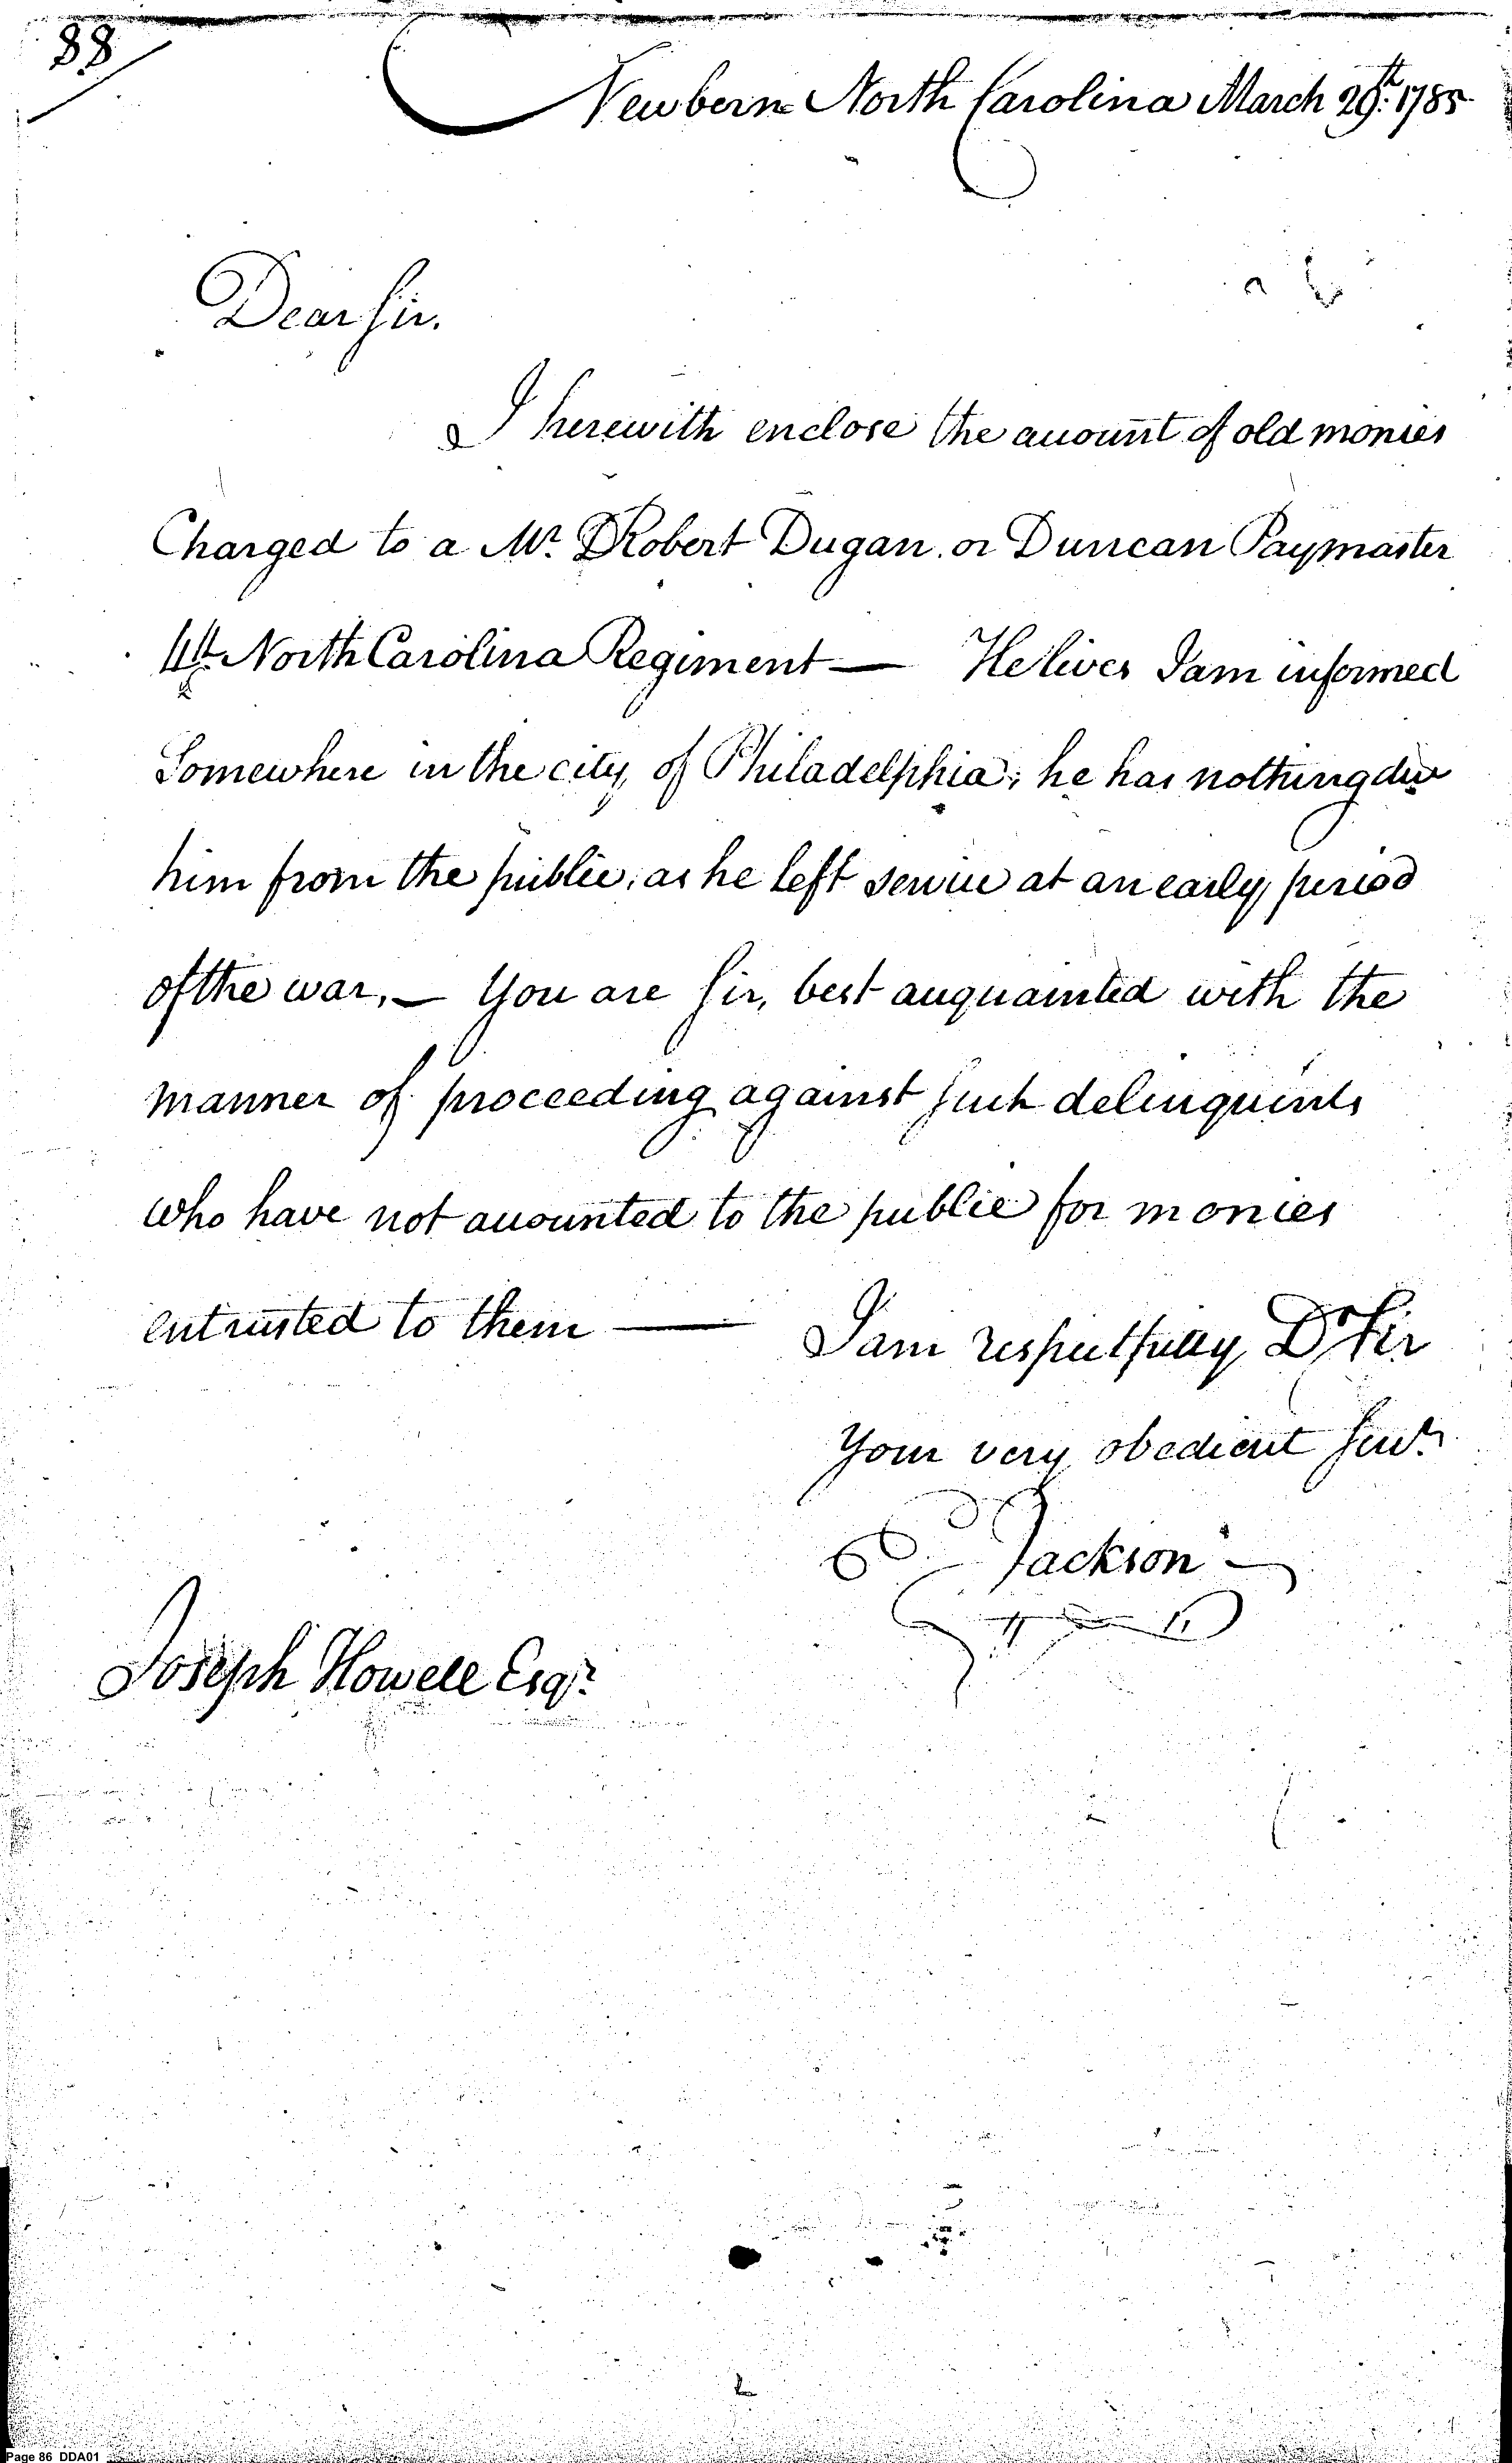 88
Newbern North Carolina March 29th. 1785
Dear Sir.
I herewith enclose the account of old monies
Charged to a Mr. Robert Dugan. or Duncan Paymaster
4th North Carolina Regiment — He lives I am informed
Somewhere in the city, of Philadelphia; he has nothing due
him from the public, as he left service at an early period
of the war, — You are Sir, best acquainted with the
manner of proceeding against such delinquents
who have not accounted to the public for monies
entrusted to them — I am respectfully Dr Sir
Your very obedient Servt.
Jackson
Joseph Howell Esqr.
Page 86 DDA01